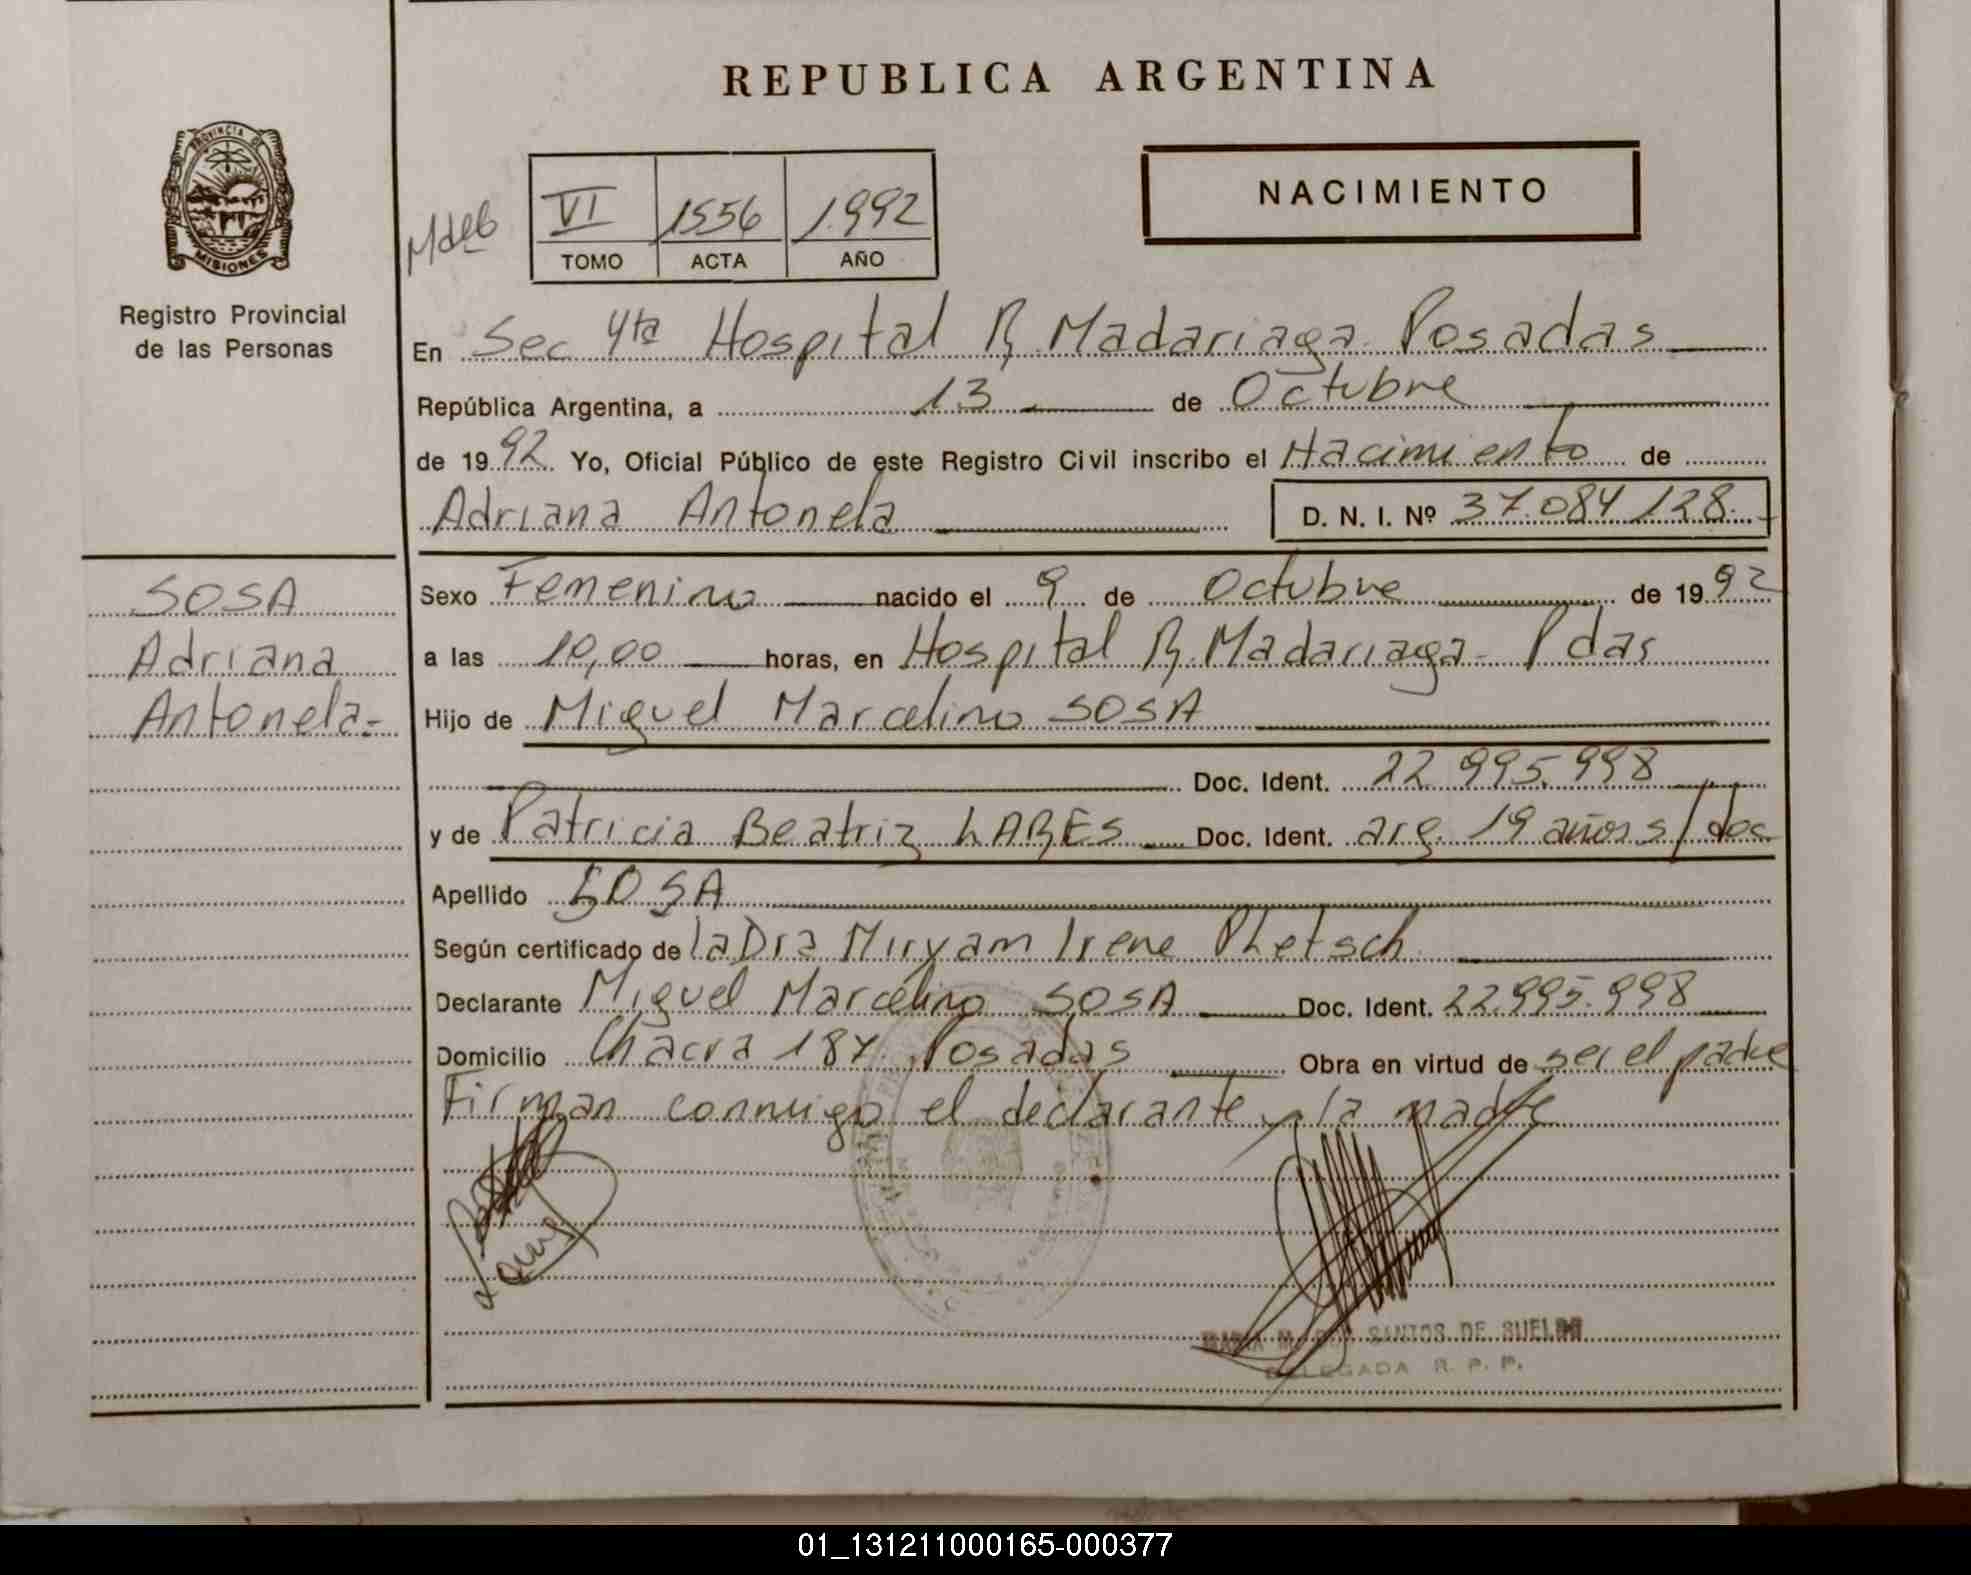 REPUBLICA ARGENTINA
PROVINCIA DE MISIONES
Registro Provincial
de las Personas
VI 1556 1.992
TOMO ACTA AÑO
NACIMIENTO
En Sec 4ta Hospital R. Madariaga Posadas
República Argentina, a 13 de Octubre
de 1992 Yo, Oficial Público de este Registro Civil inscribo el Nacimiento de
Adriana Antonela D. N. I. Nº 37.084.128
SOSA
Adriana
Antonela-
Sexo Femenino nacido el 9 de Octubre de 1992
a las 10,00 horas, en Hospital R. Madariaga- Pdas
Hijo de Miguel Marcelino SOSA
Doc. Ident. 22.995.998
y de Patricia Beatriz LARES Doc. Ident. arg. 19 años s/doc
Apellido SOSA
Según certificado de la Dra Miryam Irene
Declarante Miguel Marcelino SOSA Doc. Ident. 22.995.998
Domicilio Chacra 184. Posadas Obra en virtud de ser el padre
Firman conmigo el declarante y la madre
SANTOS DE
DELEGADA R. P. P.
01_131211000165-000377